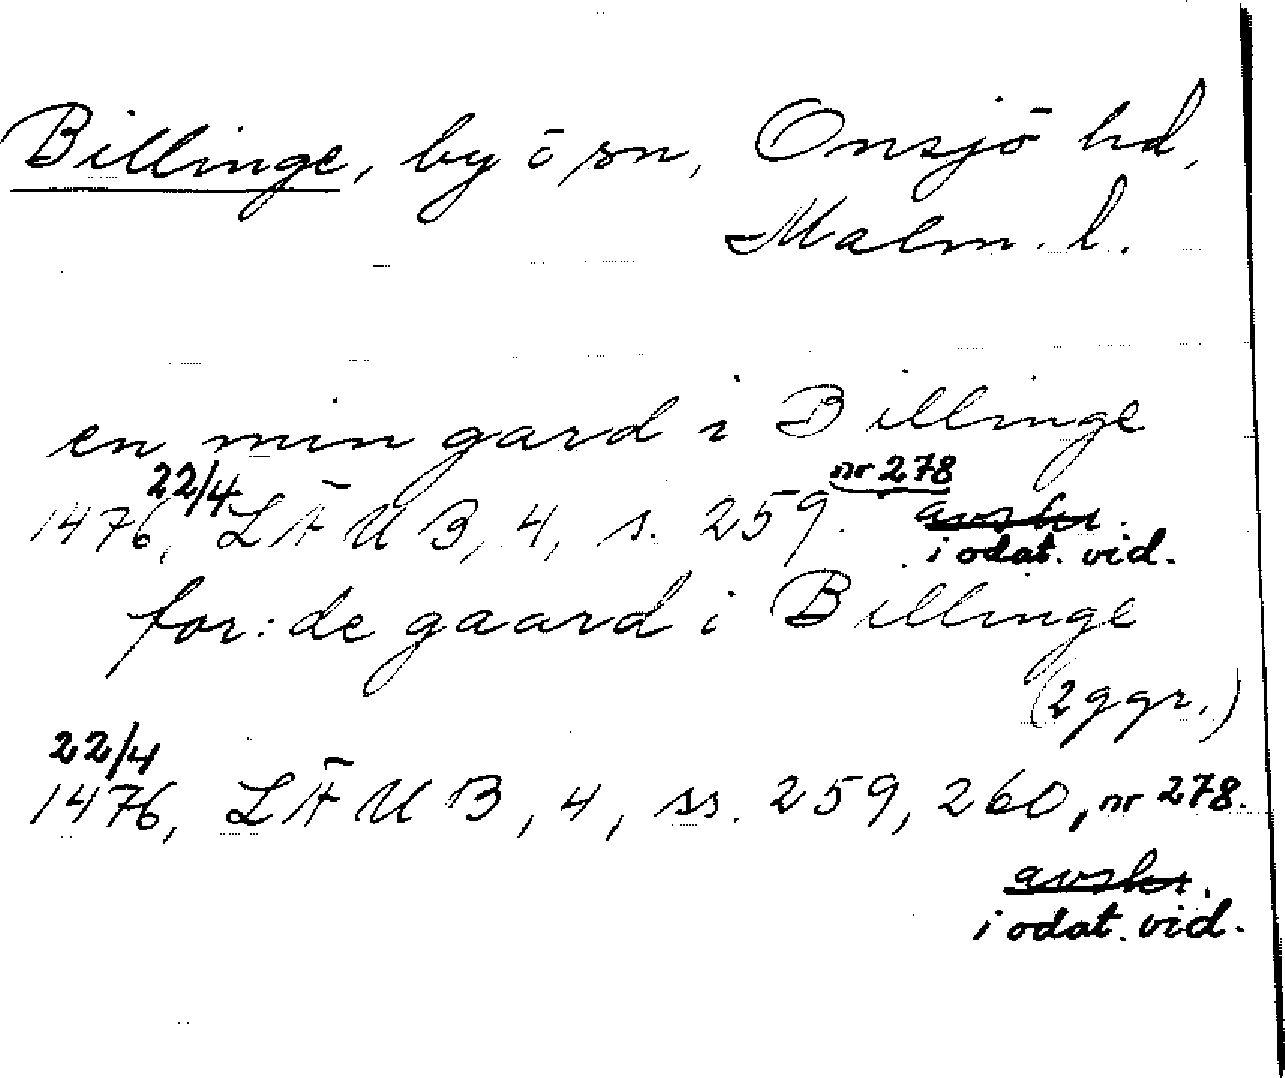 Billinge, by ō sn, Onsjö hd,
Malm. l.
en min gard i Billinge
22/4 nr 278
1476, LÄUB, 4, s. 259. avskr.
i odat. vid.
for:de gaard i Billinge
(2 ggr.)
22/4
1476, LÄUB, 4, ss. 259, 260, nr 278.
avskr.
i odat. vid.